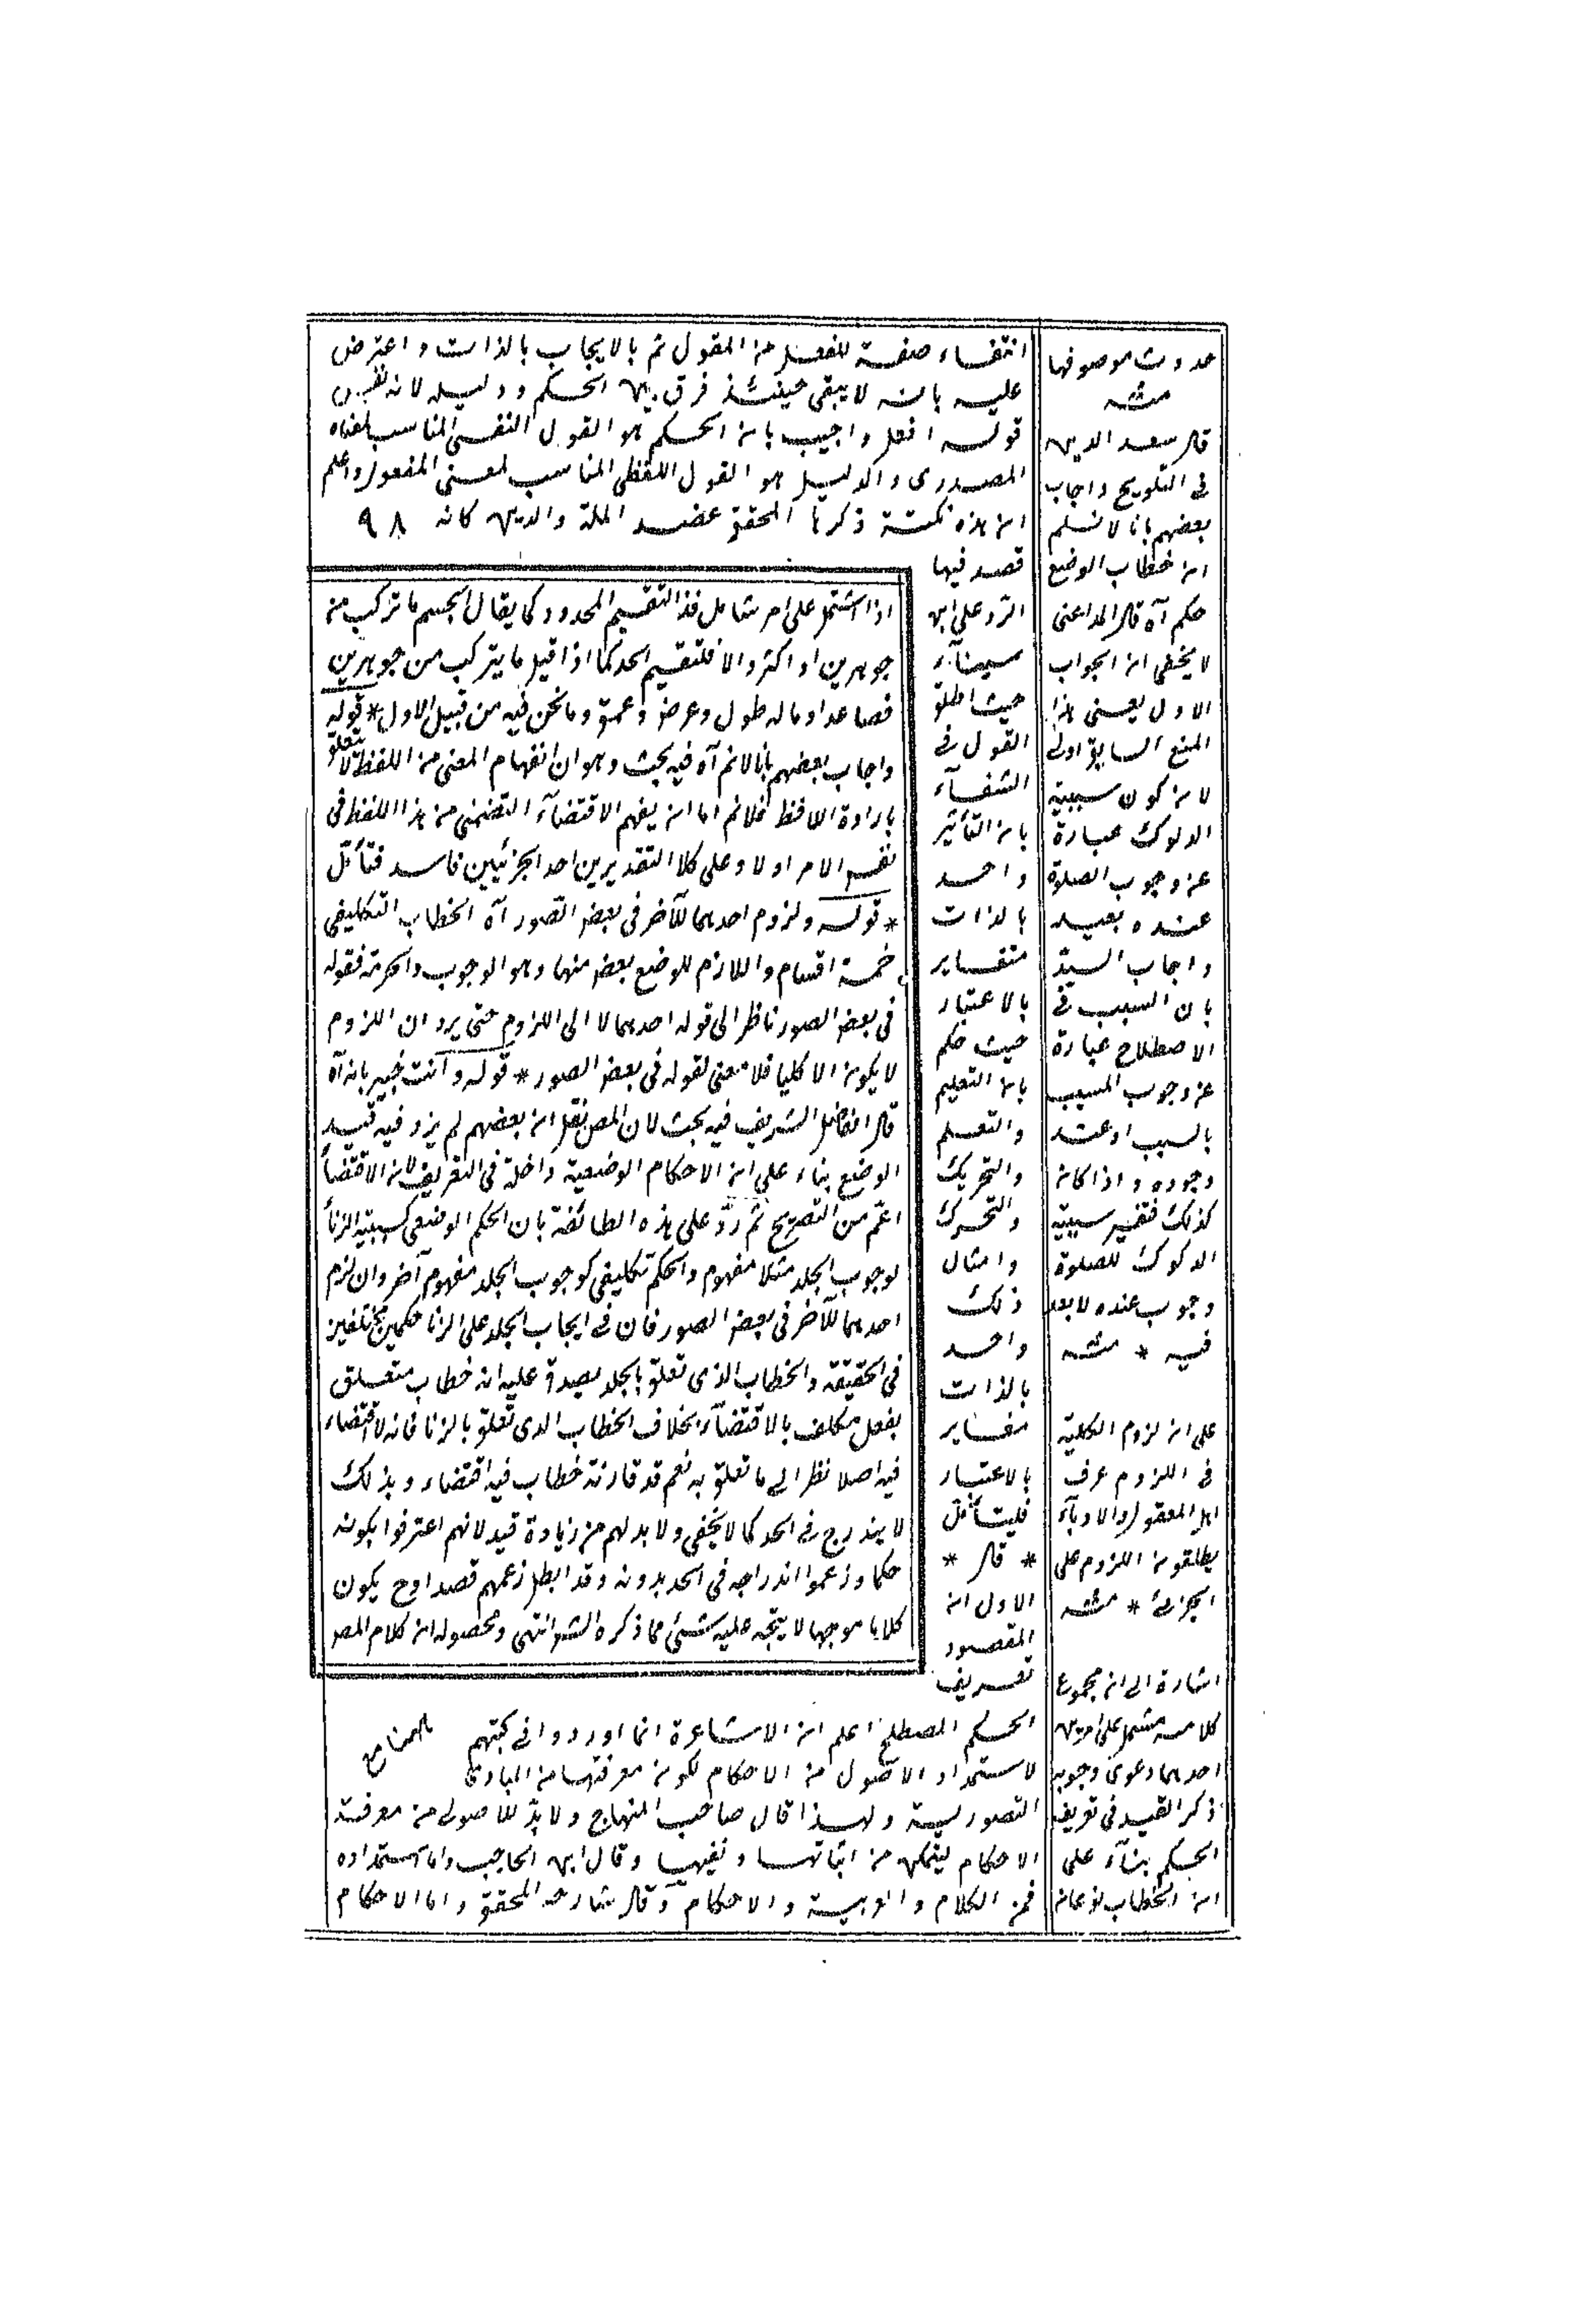 انتفاء صفة للفعل من المقول ثم بالايجاب بالذات واعترض
عليه بانه لا يبقى حينئذ فرق بين الحكم ودليله لانه نفس
قوله افعل واجيب بان الحكم هو القول النفسى المناسب لمعناه
المصدرى والدليل هو القول اللفظى المناسب لمعنى المفعول واعلم
ان هذه نكتة ذكرها المحقق عضد الملة والدين كانه ٩٨
قصد فيها
الرد على ابن
سيناء
حيث اطلق
القول فى
الشفاء
بان التأثير
واحد
بالذات
متغاير
بالاعتبار
حيث حكم
بان التعليم
والتعلم
والتحريك
والتحرك
وامثال
ذلك
واحد
بالذات
مغاير
بالاعتبار
فليتأمل
* قال *
الاول ان
المقصود
تعريف
الحكم المصطلح اعلم ان الاشاعرة انما اوردوا فى كتبهم
لاستمداد الاصول من الاحكام لكون معرفتها من المبادى
التصورية ولهذا قال صاحب المنهاج ولا بد للاصولى من معرفة
الاحكام ليتمكن من اثباتها ونفيها وقال ابن الحاجب واما استمداده
فمن الكلام والعربية والاحكام وقال شارحه المحقق واما الاحكام
اذا اشتمل على امر شامل فذا التقسيم المحدود كما يقال الجسم ما تركب من
جوهرين او اكثر والا فلتقسيم الحد كما اذا قيل ما يتركب من جوهرين
فصاعدا وما له طول وعرض وعمق وما نحن فيه من قبيل الاول * قوله
واجاب بعضهم بانا لا نم آه فيه بحث وهو ان انفهام المعنى من اللفظ لا يتعلق
بارادة اللافظ فلا نم اما ان يفهم الاقتضاء التضمنى من هذا اللفظ فى
نفس الامر او لا وعلى كلا التقديرين احد الجزئيين فاسد فتأمل
* قوله ولزوم احدهما للآخر فى بعض الصور آه الخطاب التكليفى
خمسة اقسام واللازم للوضع بعض منها وهو الوجوب والحرمة فقوله
فى بعض الصور ناظر الى قوله احدهما لا الى اللزوم حتى يرد ان اللزوم
لا يكون الا كليا فلا معنى لقوله فى بعض الصور * قوله وانت خبير بانه آه
قال الفاضل الشريف فيه بحث لان المص نقل ان بعضهم لم يزد فيه قيد
الوضع بناء على ان الاحكام الوضعية داخلة فى التعريف لان الاقتضاء
اعم من التصريح ثم رد على هذه الطائفة بان الحكم الوضعى كسببية الزنا
لوجوب الجلد مثلا مفهوم والحكم تكليفى كوجوب الجلد مفهوم آخر وان لزم
احدهما للآخر فى بعض الصور فان فى ايجاب الجلد على الزنا حكمين مختلفين
فى الحقيقة والخطاب الذى تعلق بالجلد يصدق عليه انه خطاب متعلق
بفعل مكلف بالاقتضاء بخلاف الخطاب الذى تعلق بالزنا فانه لا اقتضاء
فيه اصلا نظرا الى ما تعلق به نعم قد قارنه خطاب فيه اقتضاء وبذلك
لا يندرج فى الحد كما لا يخفى ولا بد لهم من زيادة قيد لانهم اعترفوا بكونه
حكما وزعموا اندراجه فى الحد بدونه وقد ابطل زعمهم قصدا وح يكون
كلاما موجها لا يتجه عليه شئ مما ذكره الش انتهى ومحصوله ان كلام المص
حدوث موصوفها
منه
قال سعد الدين
فى التلويح واجاب
بعضهم بانا لا نسلم
ان خطاب الوضع
حكم آه قال المداعنى
لا يخفى ان الجواب
الاول يعنى هذا
المنع السابق اولى
لان كون سببية
الدلوك عبارة
عن وجوب الصلوة
عنده بعيد
واجاب السيد
بان السبب فى
الاصطلاح عبارة
عن وجوب المسبب
بالسبب او عند
وجوده واذا كان
كذلك فتفسير سببية
الدلوك للصلوة
وجوب عنده لا بعد
فيه * منه
على ان لزوم الكلية
فى اللزوم عرف
اهل المعقول والادباء
يطلقون اللزوم على
الجزئى * منه
اشارة الى ان مجموع
كلامه مشتمل على امرين
احدهما دعوى وجوب
ذكر القيد فى تعريف
الحكم بناء على
ان الخطاب نوعان